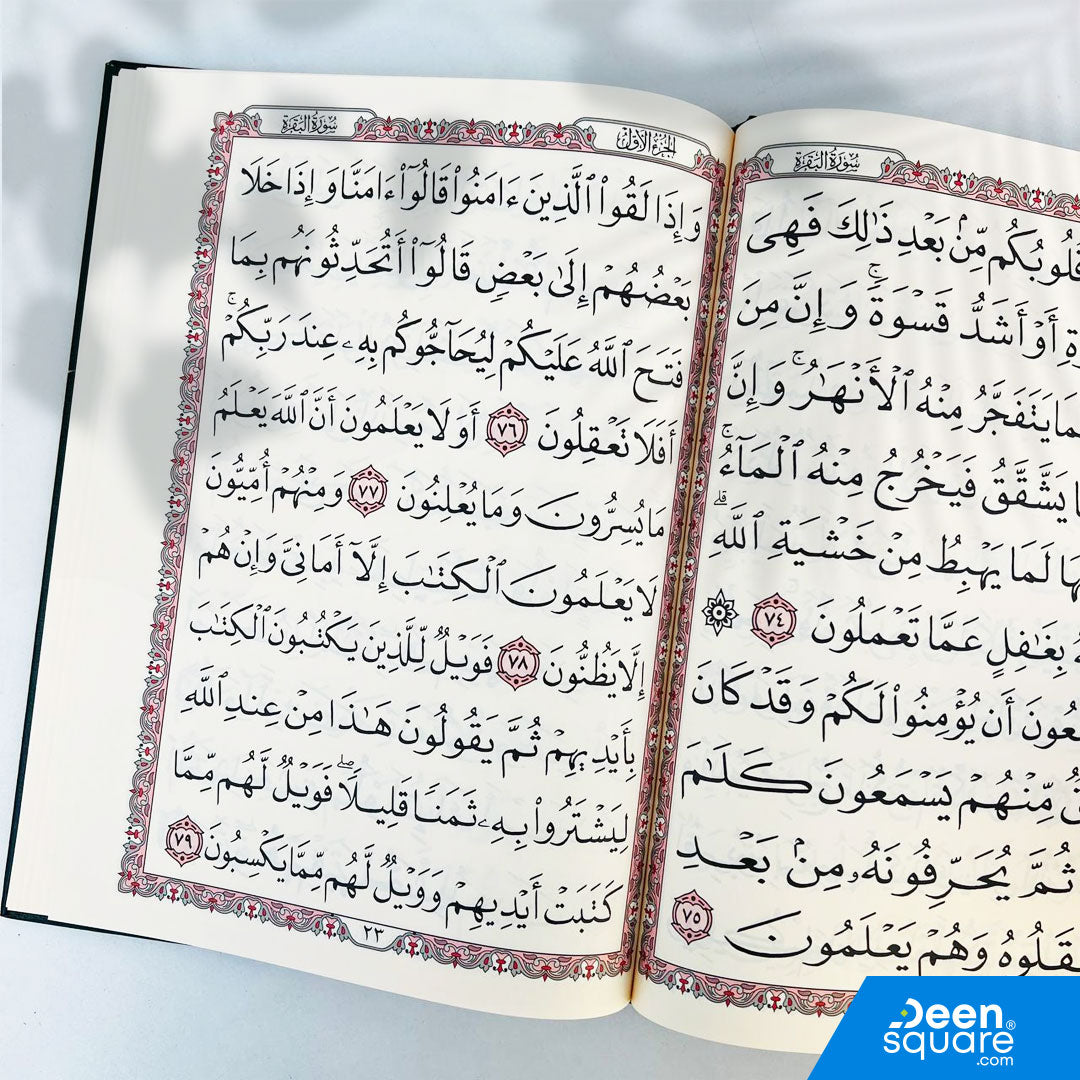 سُورَةُ البَقَرَةِ
قُلُوبُكُم مِّنۢ بَعْدِ ذَٰلِكَ فَهِىَ
أَوْ أَشَدُّ قَسْوَةً ۚ وَإِنَّ مِنَ
يَتَفَجَّرُ مِنْهُ ٱلْأَنْهَٰرُ ۚ وَإِنَّ
يَشَّقَّقُ فَيَخْرُجُ مِنْهُ ٱلْمَآءُ ۚ
لَمَا يَهْبِطُ مِنْ خَشْيَةِ ٱللَّهِ ۗ
بِغَٰفِلٍ عَمَّا تَعْمَلُونَ ٧٤ ۞
أَن يُؤْمِنُوا۟ لَكُمْ وَقَدْ كَانَ
مِّنْهُمْ يَسْمَعُونَ كَلَٰمَ
ثُمَّ يُحَرِّفُونَهُۥ مِنۢ بَعْدِ
وَهُمْ يَعْلَمُونَ ٧٥
الجُزْءُ الأَوَّلُ
سُورَةُ البَقَرَةِ
وَإِذَا لَقُوا۟ ٱلَّذِينَ ءَامَنُوا۟ قَالُوٓا۟ ءَامَنَّا وَإِذَا خَلَا
بَعْضُهُمْ إِلَىٰ بَعْضٍ قَالُوٓا۟ أَتُحَدِّثُونَهُم بِمَا
فَتَحَ ٱللَّهُ عَلَيْكُمْ لِيُحَآجُّوكُم بِهِۦ عِندَ رَبِّكُمْ ۚ
أَفَلَا تَعْقِلُونَ ٧٦ أَوَلَا يَعْلَمُونَ أَنَّ ٱللَّهَ يَعْلَمُ
مَا يُسِرُّونَ وَمَا يُعْلِنُونَ ٧٧ وَمِنْهُمْ أُمِّيُّونَ
لَا يَعْلَمُونَ ٱلْكِتَٰبَ إِلَّآ أَمَانِىَّ وَإِنْ هُمْ
إِلَّا يَظُنُّونَ ٧٨ فَوَيْلٌ لِّلَّذِينَ يَكْتُبُونَ ٱلْكِتَٰبَ
بِأَيْدِيهِمْ ثُمَّ يَقُولُونَ هَٰذَا مِنْ عِندِ ٱللَّهِ
لِيَشْتَرُوا۟ بِهِۦ ثَمَنًا قَلِيلًا ۖ فَوَيْلٌ لَّهُم مِّمَّا
كَتَبَتْ أَيْدِيهِمْ وَوَيْلٌ لَّهُم مِّمَّا يَكْسِبُونَ ٧٩
٢٣
Deen
square®
.com